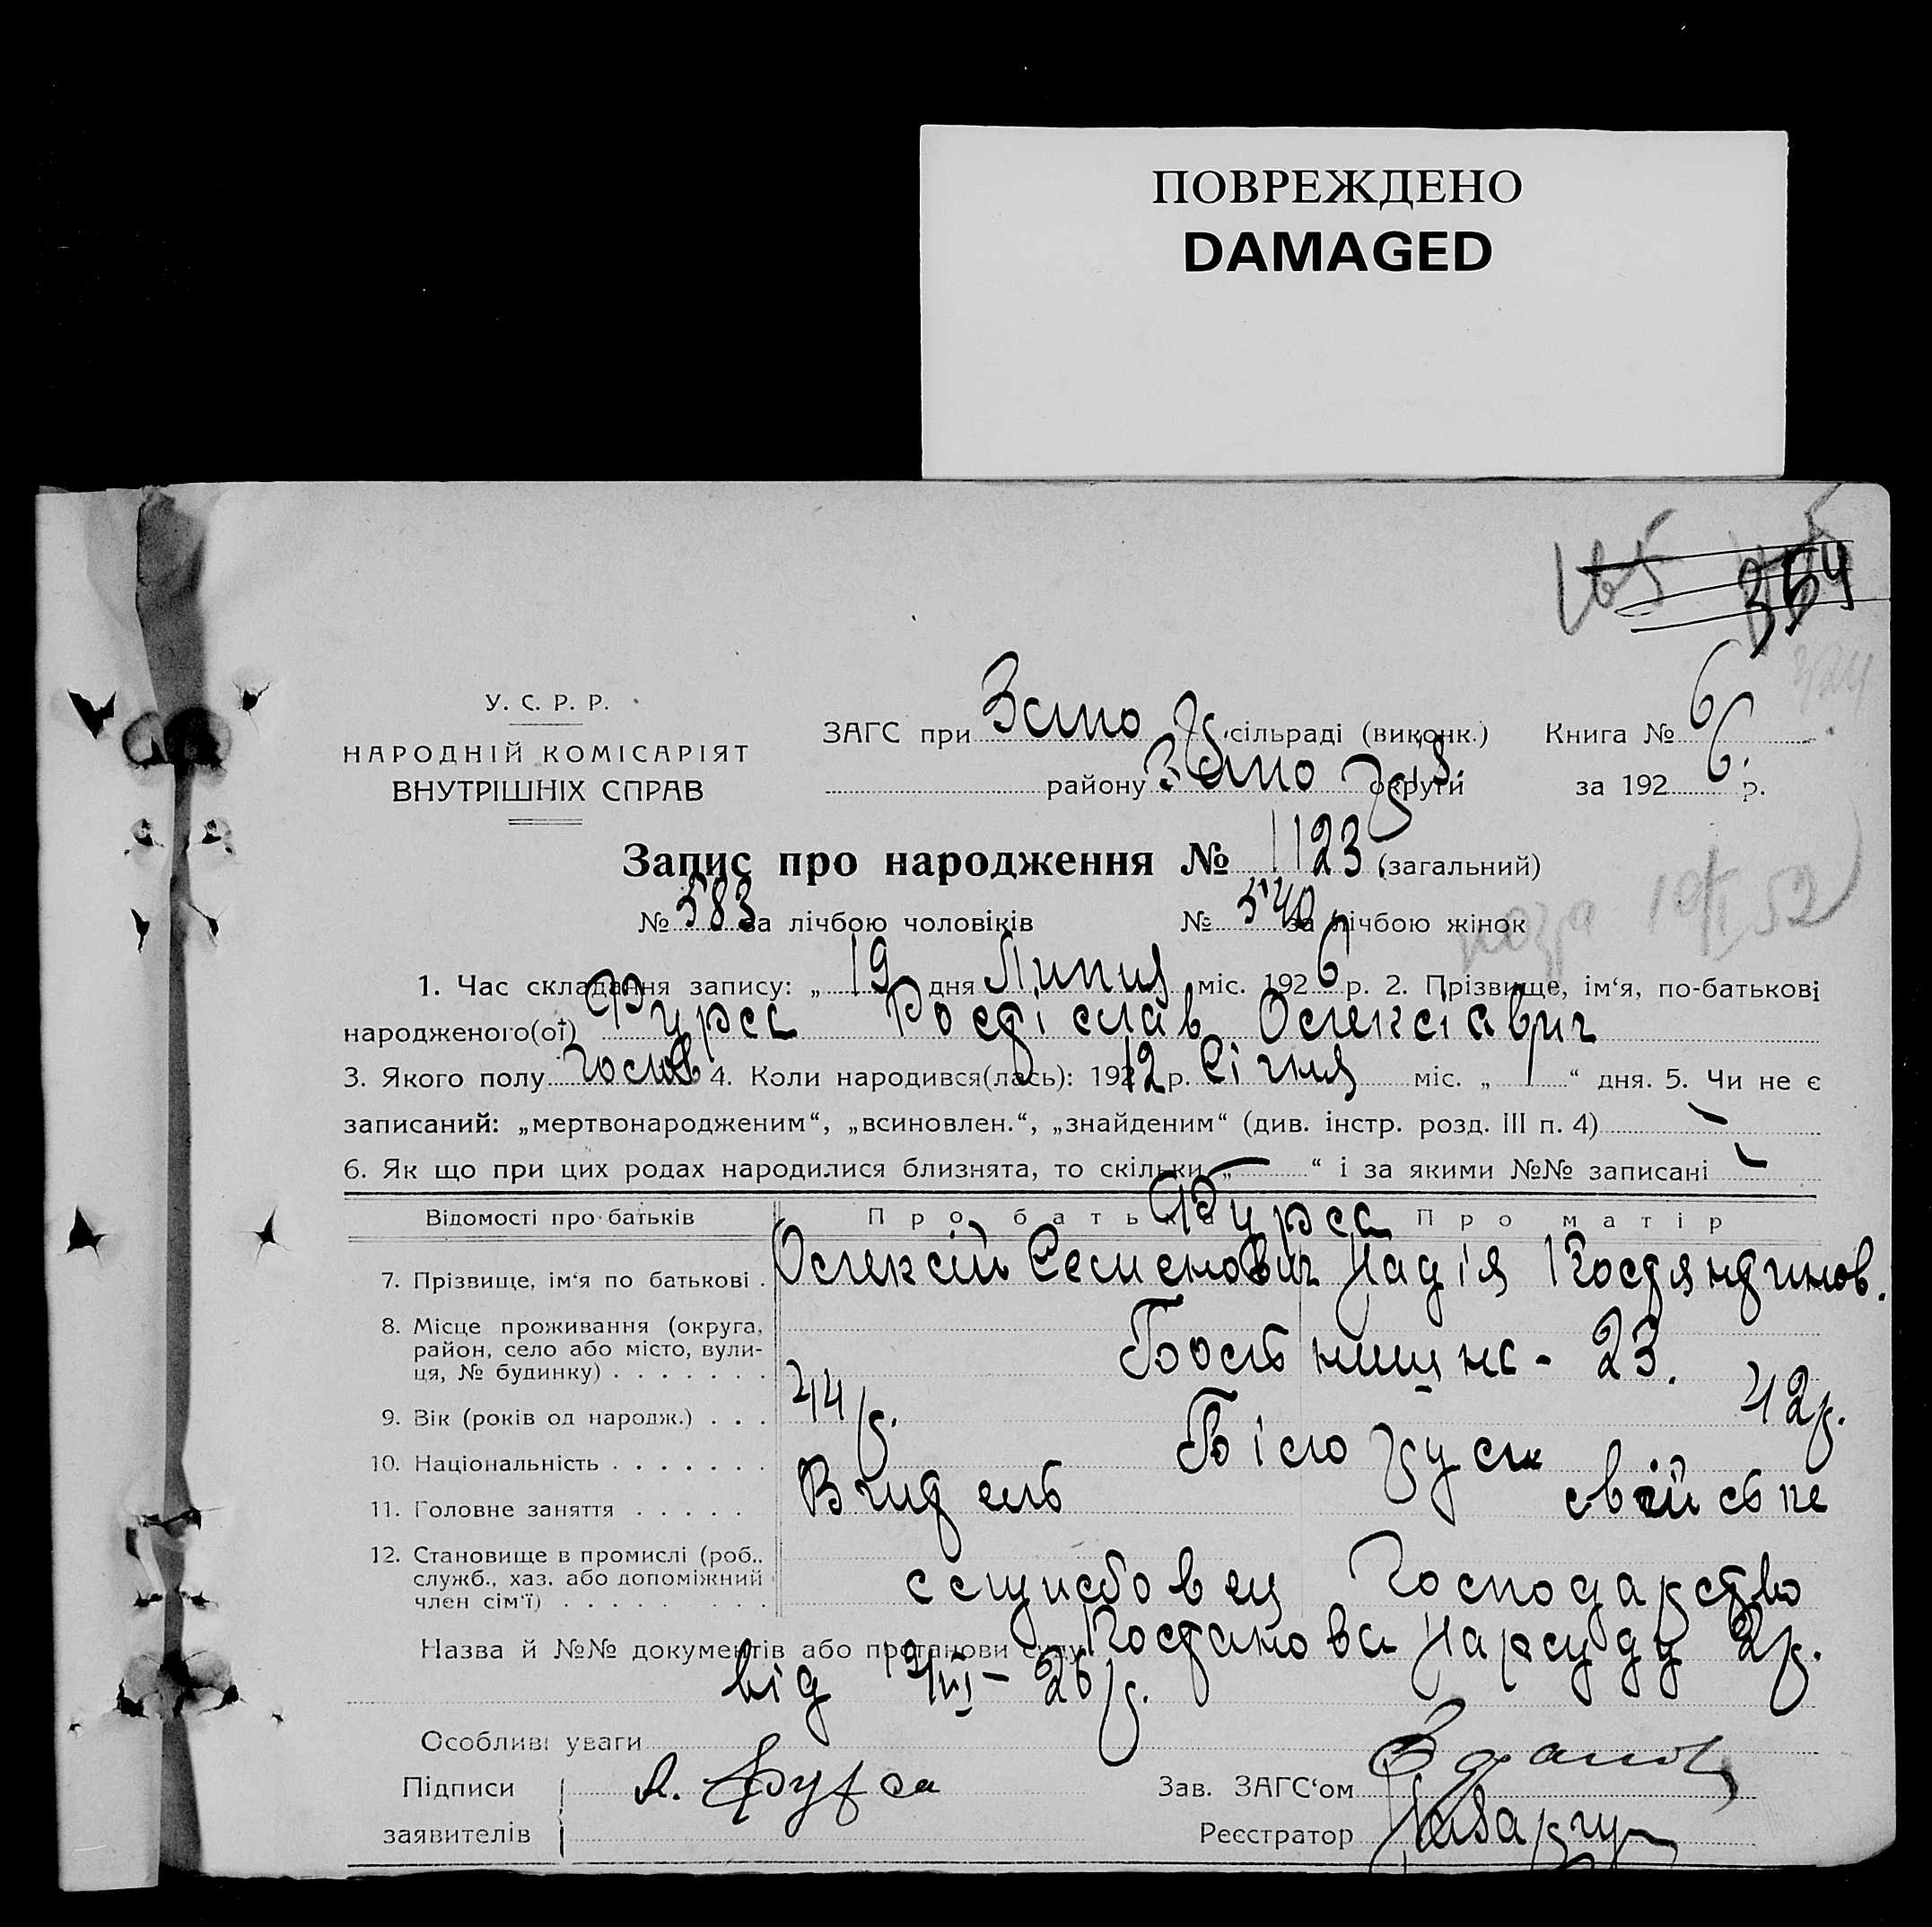 ПОВРЕЖДЕНО
DAMAGED
165
354
У. С. Р. Р.
НАРОДНІЙ КОМІСАРІЯТ
ВНУТРІШНІХ СПРАВ
ЗАГС при сільраді (виконк.) Книга № 6
району округи за 1926 р.
Запис про народження № 1123 (загальний)
№ 583 за лічбою чоловіків № 540 за лічбою жінок
1. Час складання запису: „ 19 дня Липня міс. 1926 р. 2. Прізвище, ім‘я, по-батькові
народженого(ої) Фурса Ростіслав Олексіавич
3. Якого полу чолов 4. Коли народився(лась): 1912 р. Січня міс. „ 1 “ дня. 5. Чи не є
записаний: „мертвонародженим“, „всиновлен.“, „знайденим“ (див. інстр. розд. III п. 4) -
6. Як що при цих родах народилися близнята, то скільки „ - “ і за якими №№ записані -
Відомості про батьків Про батька Про матір
Фурса
7. Прізвище, ім‘я по батькові . Олексій Семенович Надія Костянтинов.
8. Місце проживання (округа,
район, село або місто, вули-
ця, № будинку) . . . . . . . 23.
9. Вік (років од народж.) . . . 44 р. 42 р.
10. Національність . . . . . . . Білоруси
11. Головне заняття . . . . . Вчитель
12. Становище в промислі (роб.,
служб., хаз. або допоміжний
член сім‘ї) . . . . . . . . . службовец Господарство
Назва й №№ документів або протанови суду Постанова Нарсуду 2 р.
від
Особливі уваги
Підписи А. Фурса Зав. ЗАГС‘ом
заявителів Реєстратор